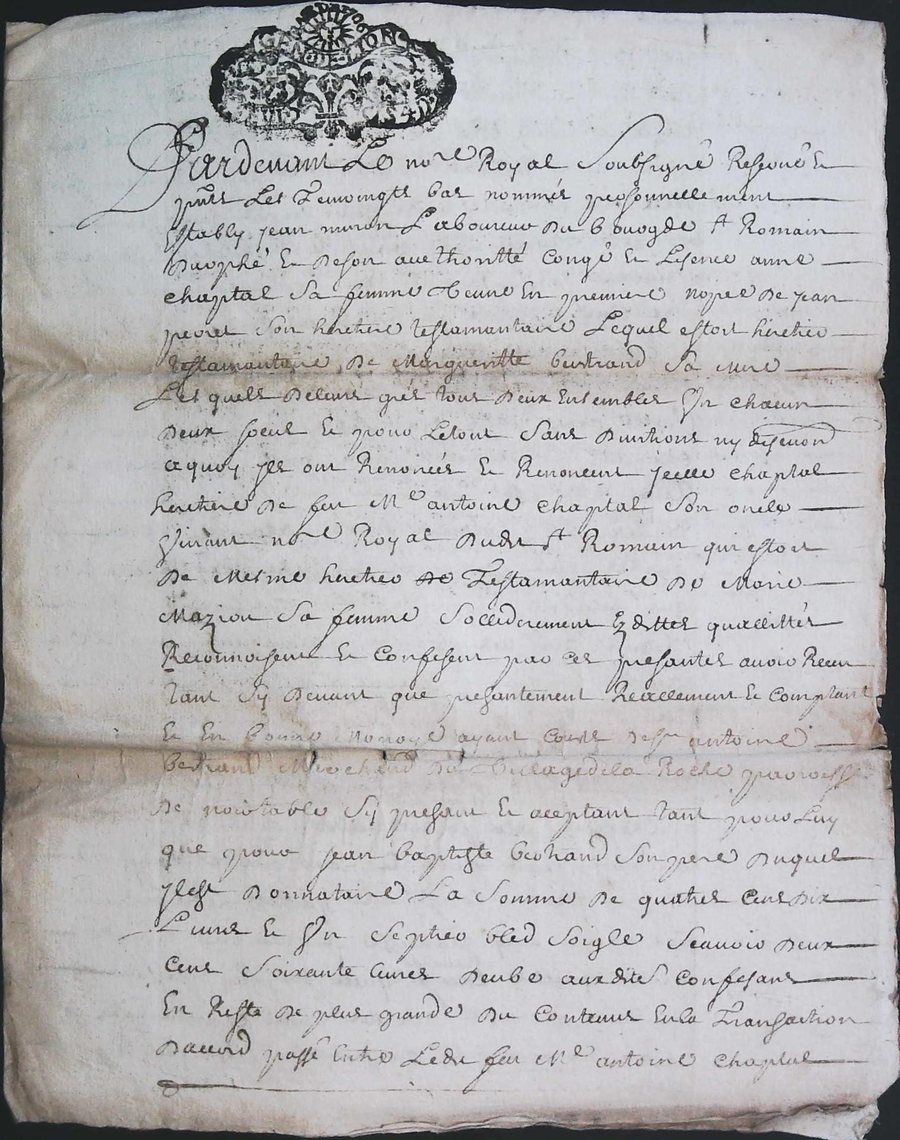 GEN DE LION
Pardevant Le nore Royal Soubsigné Reservé Et
pnts Les Temoingts bas nommés personnellement
Estably jean miron Laboureur Du bourg de st Romain
Et De son authoritté Congé Et Lisence anne
chaptal Sa femme Veuve En premiere nopce De jean
peret Son heretiere testamantaire Lequel estoit heretier
testamantaire De Margueritte bertrand Sa Mere
Lesquels De leurs grés tous Deux Ensembles Un chacun
Deux seul Et pour Le tout Sans Divitions ny
a quoy jls ont Renoncés Et Renoncent jcelle chaptal
heretiere De feu Mre antoine chaptal Son oncle
Vivant nore Royal Dudit st Romain qui estoit
De Mesme heretier Testamantaire De Marie
Maziou Sa femme Sollidairement Esdittes quallittés
Reconnoisent Et Confesent par ces presantes avoir Receu
tant Cy Devant que presantement Reallement Et Comptant
Et En bonne monoye ayant Cours de sr antoine
bertrand Marchand Du Vilage de la Roche paroisse
De noirétable Cy presant Et aceptant tant pour Luy
que pour jean baptiste bertrand Son pere Duquel
jl est Donnataire La Somme De quatres Cens Dix
Livres Et Un Septier bled Soigle Scavoir Deux
Cens Soixante livres Deube auxdits Confesans
En Reste De plus grande Du Contenus En la Transaction
D'accord passé Entre Ledit feu Mre antoine chaptal